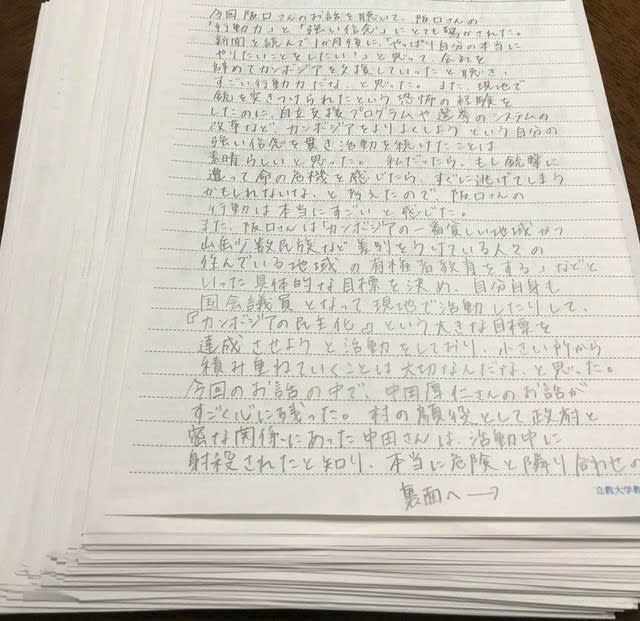 今回阪口さんのお話を聴いて、阪口さんの
「行動力」と「強い信念」にとても驚かされた。
新聞を読んで1か月後に、「やっぱり自分の本当に
やりたいことをしたい!」と思って会社を
辞めてカンボジアを支援していったと聴き、
すごい行動力だな、と思った。また、現地で
銃を突きつけられたという恐怖の経験を
したのに、自立支援プログラムや選挙のシステムの
改革など、カンボジアをよりよくしようという自分の
強い信念を貫き活動を続けたことは
素晴らしいと思った。私だったら、もし銃撃に
遭って命の危機を感じたら、すぐに逃げてしまう
かもしれないな、と考えたので、阪口さんの
行動は本当にすごいと感じた。
また、阪口さんは「カンボジアの一番貧しい地域かつ
山岳少数民族など差別をうけている人々の
住んでいる地域の有権者教育をする」などと
いった具体的な目標を決め、自分自身も
国会議員となって現地で活動したりして、
『カンボジアの民主化』という大きな目標を
達成させようと活動をしており、小さい所から
積み重ねていくことは大切なんだな、と思った。
今回のお話の中で、中田厚仁さんのお話が
すごく心に残った。村の顔役として政府と
密な関係にあった中田さんは、活動中に
射殺されたと知り、本当に危険と隣り合わせの
裏面へ→
立教大学教